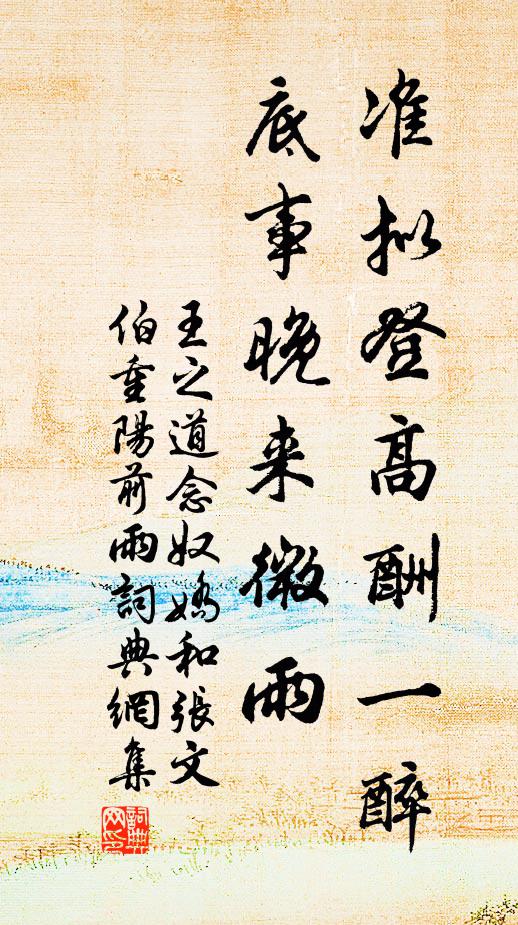 准拟登高酬一醉
底事晚来微雨
王之道念奴嬌和張文
伯重陽前雨詞典網集
詞典
网